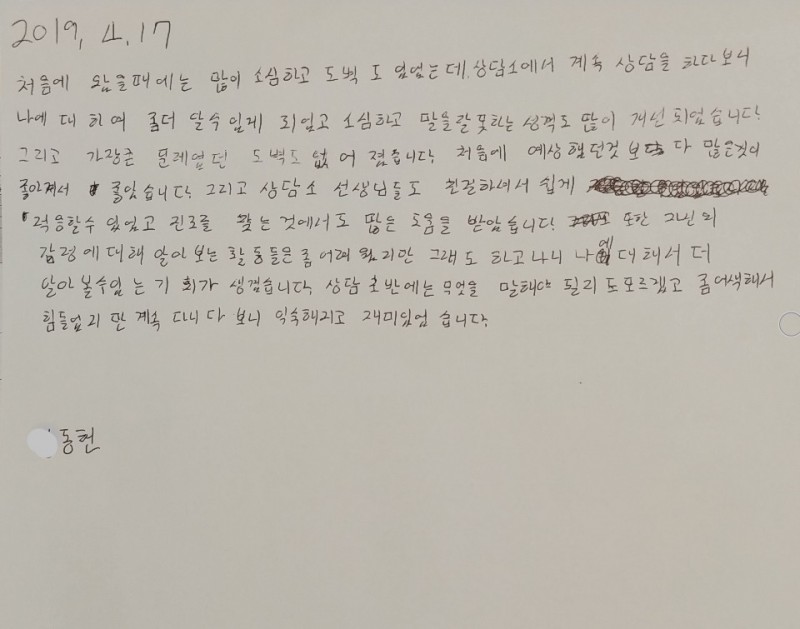 2019. 4.17
처음에 왔을때에는 많이 소심하고 도벽 도 있었는데 상담소에서 계속 상담을 하다보니
나에 대 하여 좀더 알수 있게 되었고 소심하고 말을잘 못하는 성격도 많이 개선 되었습니다.
그리고 가장큰 문제였던 도벽도 없어 졌습니다. 처음에 예상했던것 보다 더 많은것이
좋아져서 좋았습니다. 그리고 상담소 선생님들도 친절하셔서 쉽게
적응할수 있었고 진로를 찾는 것에서도 많은 도움을 받았습니다. 또한 그날의
감정에대해 알아 보는 활동들은 좀 어려 웠지만 그래도 하고나니 나에 대해서 더
알아 볼수있는 기회가 생겼습니다. 상담 초반에는 무엇을 말해야 될지 도모르겠고 좀 어색해서
힘들었지만 계속 다니다 보니 익숙해지고 재미있었습니다.
동현